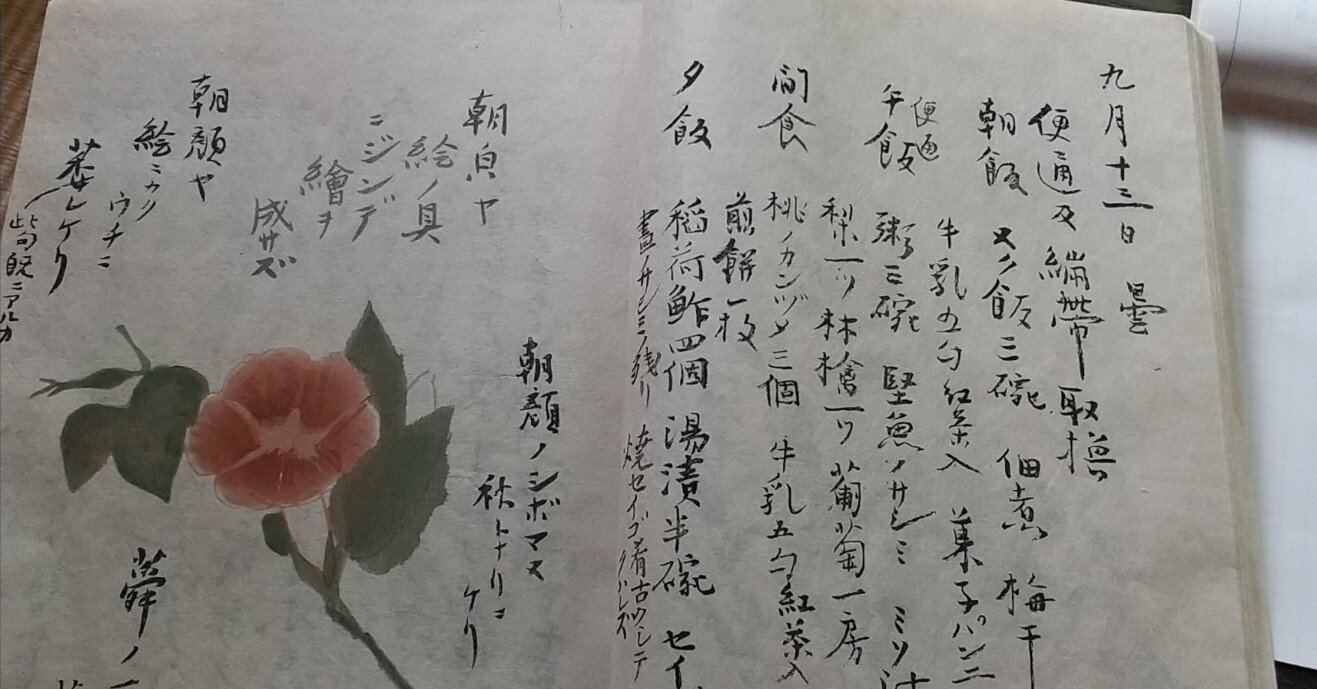 九月十三日 曇
便通及繃帯取換
朝飯 ヌク飯二碗 佃煮 梅干
牛乳五勺紅茶入 菓子パン二
便通
午飯 粥三碗 堅魚ノサシミ ミソ汁
梨一ツ 林檎一ツ 葡萄一房
間食 桃ノカンヅメ三個 牛乳五勺紅茶入
煎餅一枚
夕飯 稲荷鮓四個 湯漬半碗 セイ
昼ノサシミノ残リ 焼セイゴ肴古クシテクハレズ
朝顔ノシボマヌ
秋トナリニ
ケリ
朝皃ヤ
絵ノ具
ニジンデ
繪ヲ
成サズ
朝顔ヤ
絵ニカク
ウチニ
萎レケリ
此句既ニアルカ
蕣ノ一